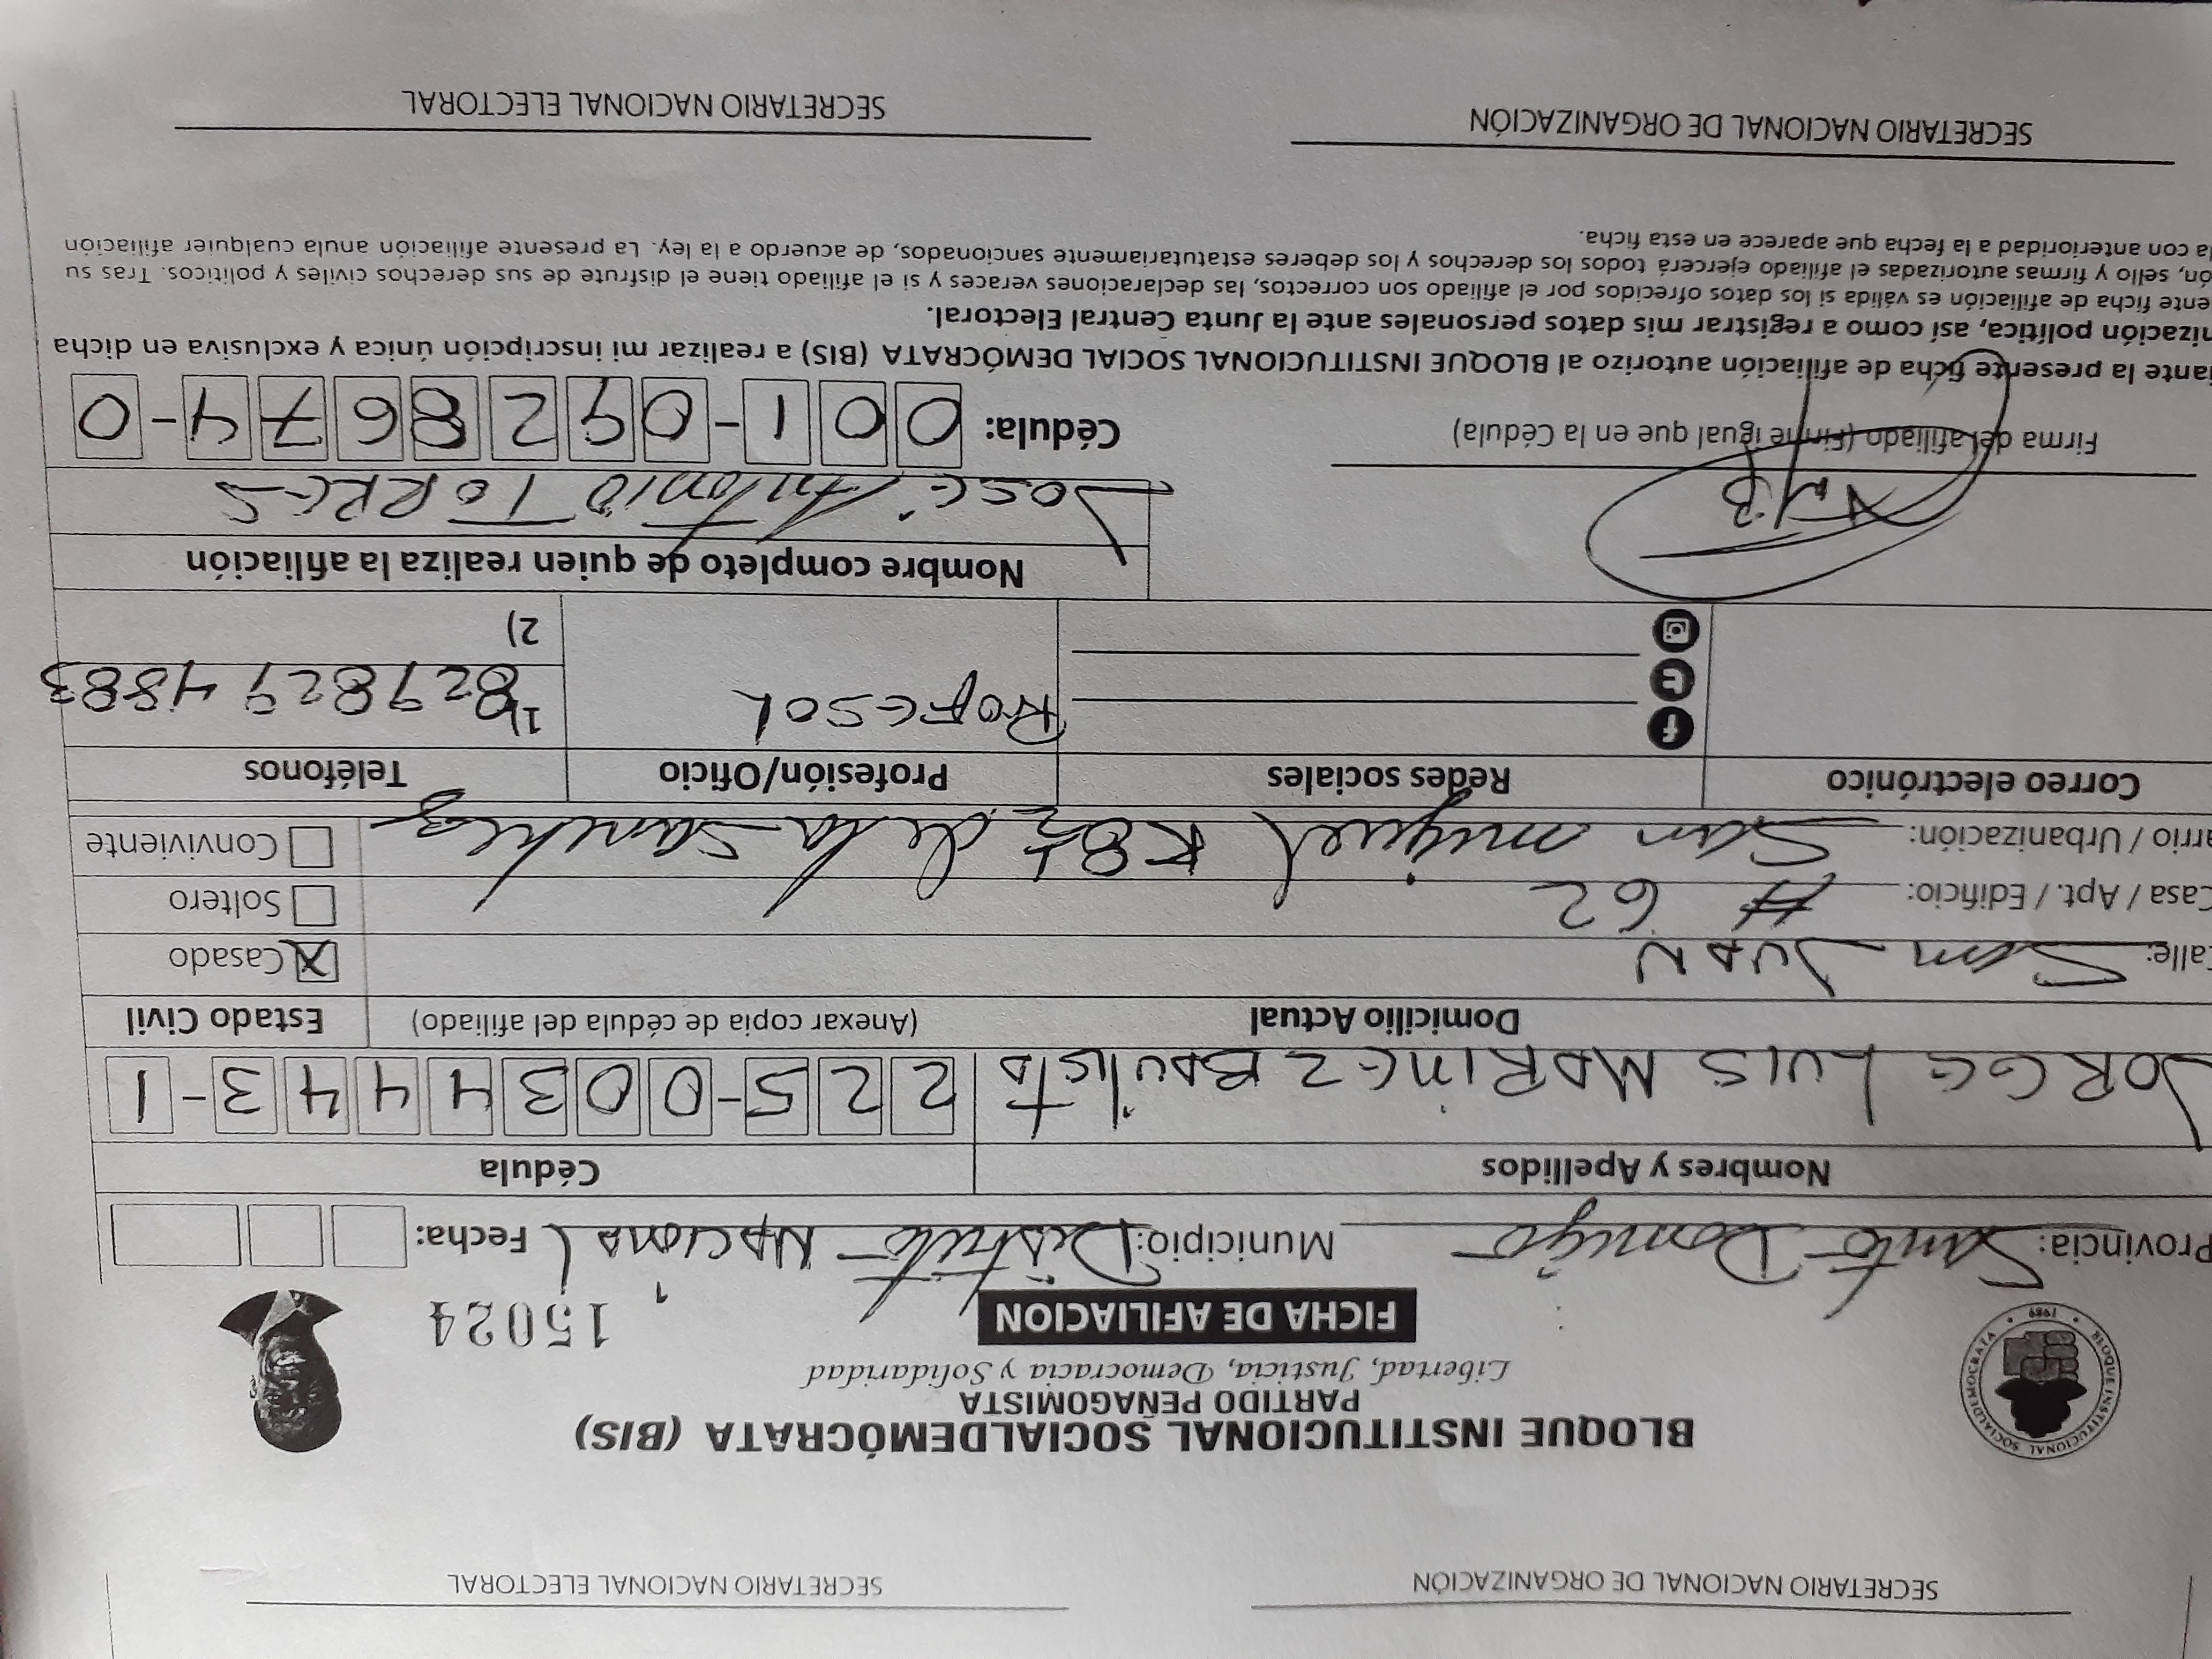 SECRETARIO NACIONAL DE ORGANIZACIÓN
SECRETARIO NACIONAL ELECTORAL
BLOQUE INSTITUCIONAL SOCIALDEMÓCRATA • 1989 •
BLOQUE INSTITUCIONAL SOCIALDEMÓCRATA (BIS)
PARTIDO PEÑAGOMISTA
Libertad, Justicia, Democracia y Solidaridad
FICHA DE AFILIACION
15024
Provincia: Santo Domigo Municipio: Distrito Nacional Fecha:
Nombres y Apellidos
Cédula
JORGE LUIS MARINEZ Bautista
225-0034443-1
Domicilio Actual
(Anexar copia de cédula del afiliado)
Estado Civil
Calle: San JUAN
X Casado
Casa / Apt. / Edificio: # 62
Soltero
arrio / Urbanización: San miguel K8½ de la Sanchez
Conviviente
Correo electrónico
Redes sociales
Profesión/Oficio
Teléfonos
PROFESOR
1) 829 829 4883
2)
Nombre completo de quien realiza la afiliación
José Antonio TORRES
Firma del afiliado (Firme igual que en la Cédula)
Cédula: 001-0928674-0
iante la presente ficha de afiliación autorizo al BLOQUE INSTITUCIONAL SOCIAL DEMÓCRATA (BIS) a realizar mi inscripción única y exclusiva en dicha
nización política, así como a registrar mis datos personales ante la Junta Central Electoral.
ente ficha de afiliación es válida si los datos ofrecidos por el afiliado son correctos, las declaraciones veraces y si el afiliado tiene el disfrute de sus derechos civiles y políticos. Tras su
ón, sello y firmas autorizadas el afiliado ejercerá todos los derechos y los deberes estatutariamente sancionados, de acuerdo a la ley. La presente afiliación anula cualquier afiliación
da con anterioridad a la fecha que aparece en esta ficha.
SECRETARIO NACIONAL DE ORGANIZACIÓN
SECRETARIO NACIONAL ELECTORAL